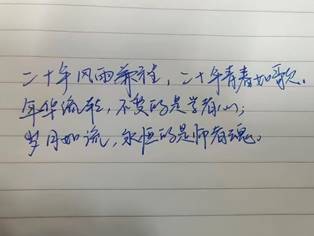 二十年风雨兼程,二十年青春如歌。
年华流转,不变的是学者心;
岁月如流,永恒的是师者魂。